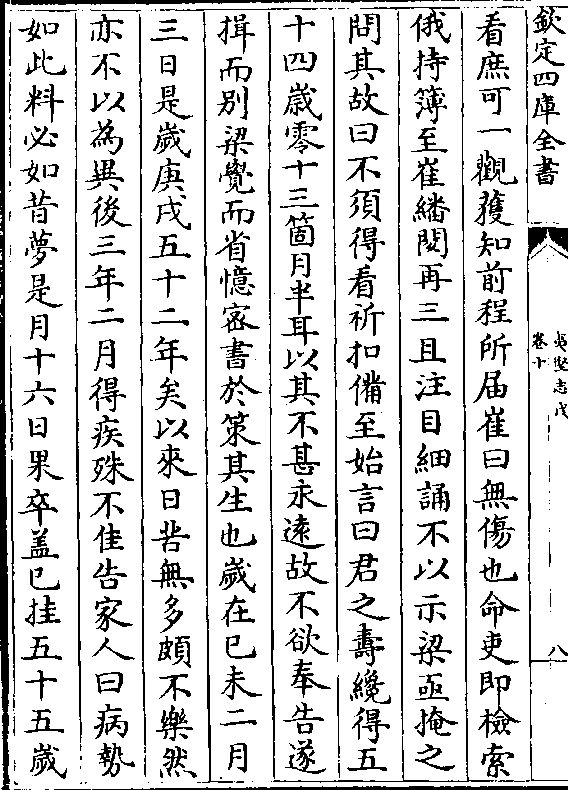 欽定四庫全書
夷堅志戊
卷十
八
看庶可一觀獲知前程所届崔曰無傷也命吏即檢索
俄持簿至崔繙閲再三且注目細誦不以示梁亟掩之
問其故曰不須得看祈扣備至始言曰君之壽纔得五
十四歳零十三箇月半耳以其不甚永遠故不欲奉告遂
揖而别梁覺而省憶宻書於策其生也歲在巳未二月
三日是歲庚戌五十二年矣以來日苦無多頗不樂然
亦不以為異後三年二月得疾殊不佳告家人曰病勢
如此料必如昔夢是月十六日果卒盖已挂五十五歲